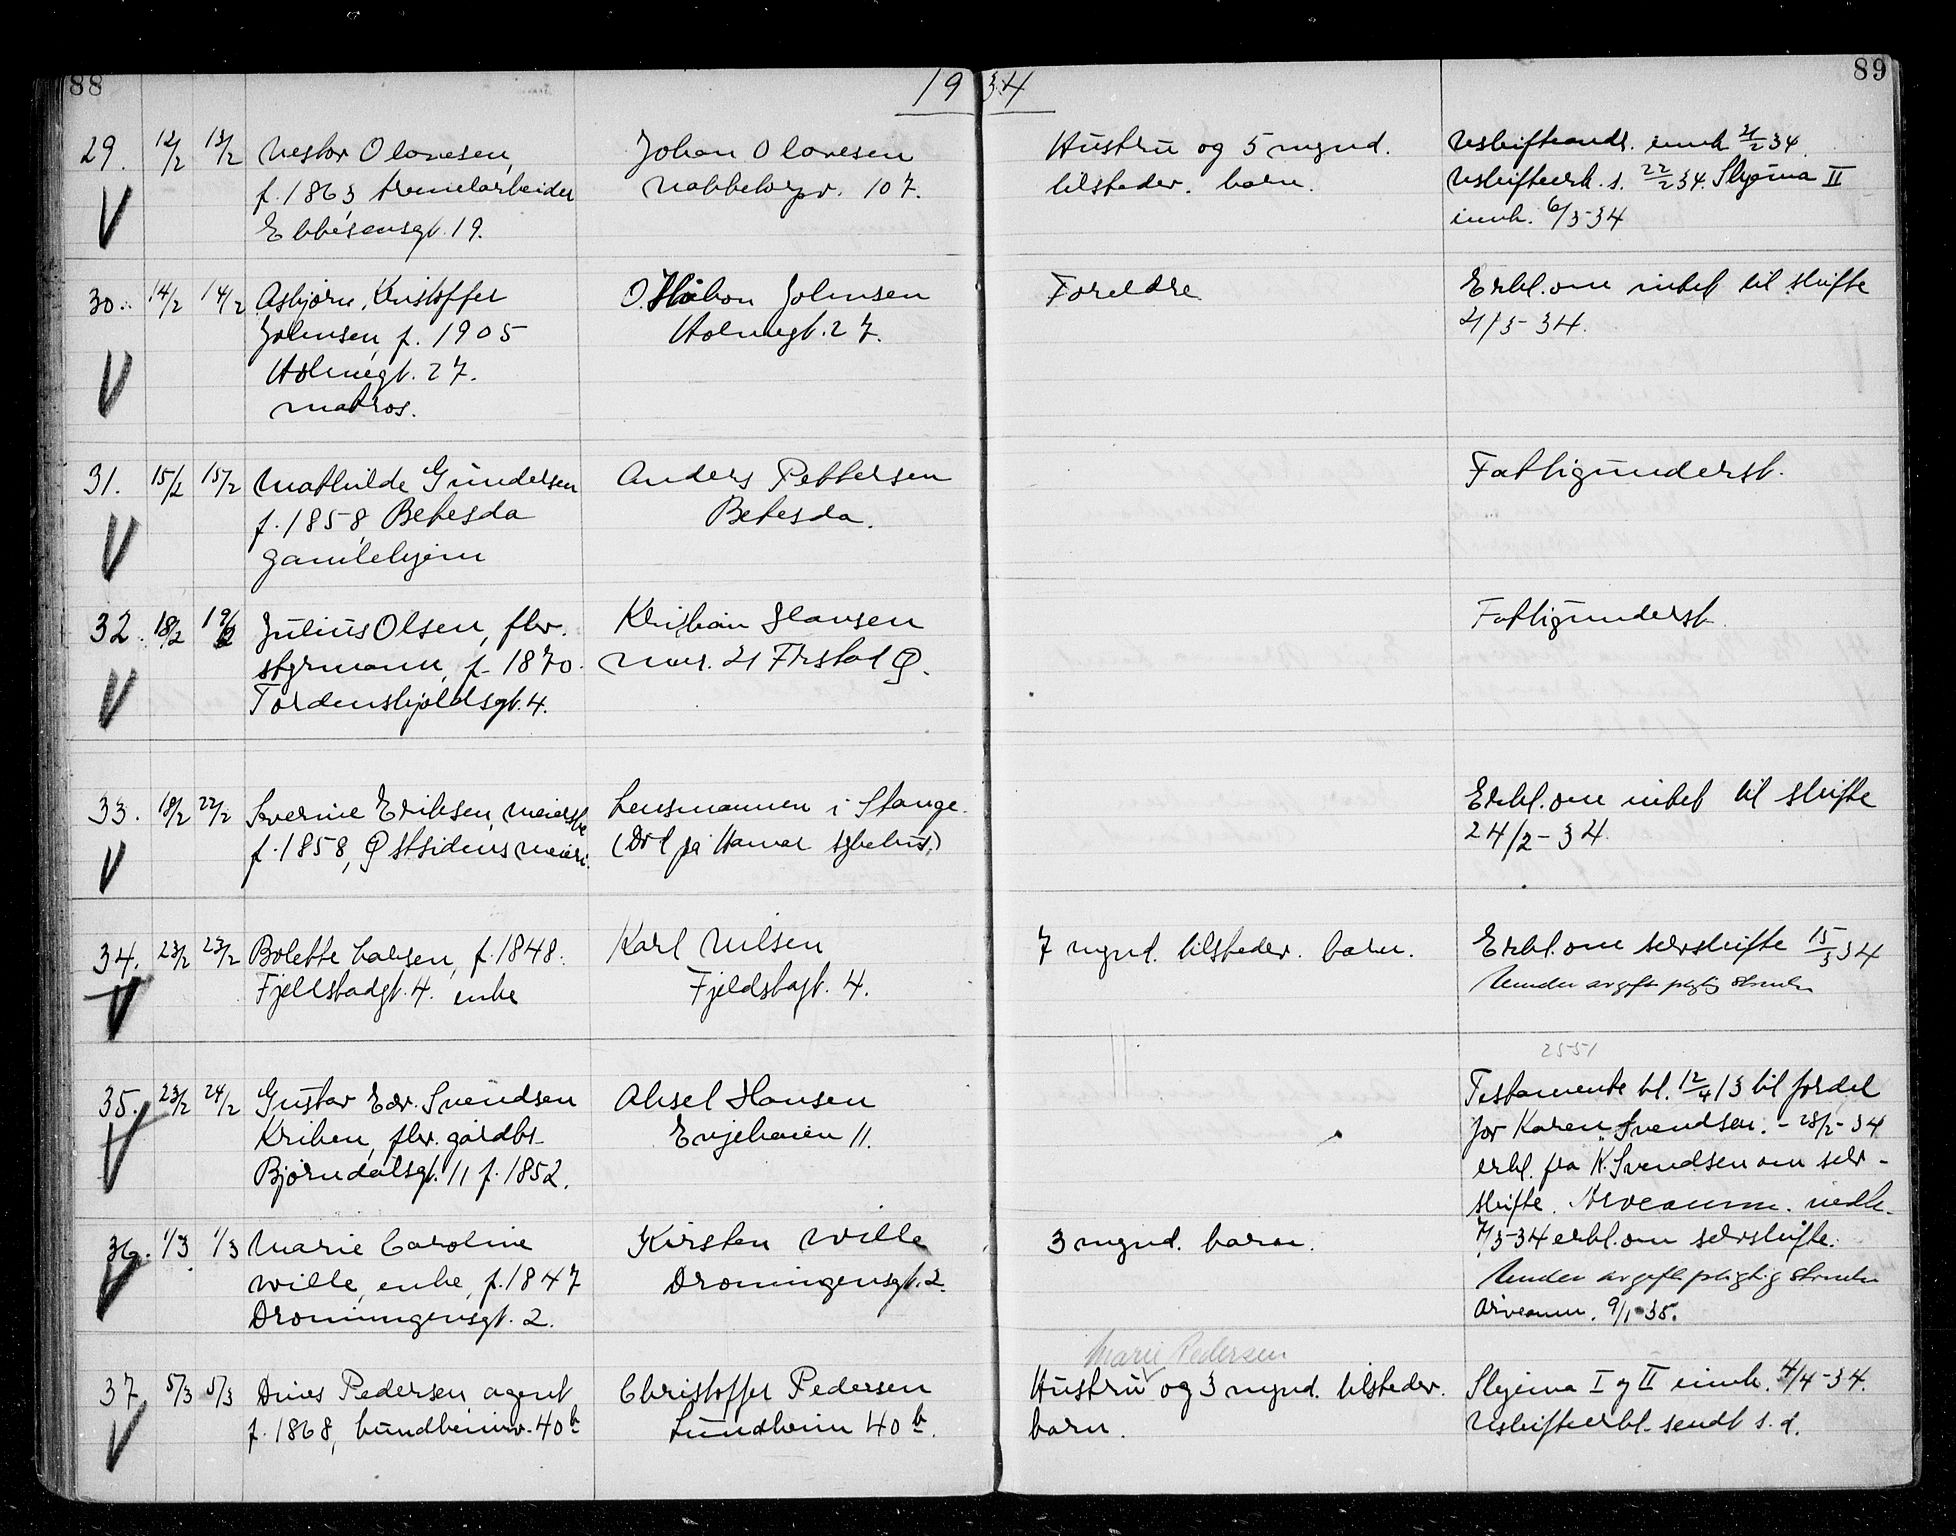 88
1934
89
29. 12/2 13/2 Nestor Olavesen, Johan Olavesen Hustru og 5 mynd. Uskifteandr. innk 21/2 34.
f. 1863, Nabbetorpv. 107. tilstedev. barn. Uskifteerk. s. 22/2 34. Skjema II
Ebbesensgt. 19. innk. 6/3-34
30. 14/2 14/2 Asbjørn, Kristoffer O. Håkon Johnsen Foreldre Erkl. om intet til skifte
Johnsen, f. 1905 Holmegt. 27. 2/3-34.
Holmegt. 27.
matros.
31. 15/2 15/2 Mathilde Gundersen Anders Pettersen Fattigunderst.
f. 1858, Betesda Betesda.
gamlehjem
32. 18/2 19/2 Julius Olsen, fhv. Kristian Hansen Fattigunderst.
styrmann, f. 1870. Nær. 21 Frstad Ø.
Tordenskjoldsgt. 4.
33. 18/2 22/2 Severine Eriksen, meierske Lensmannen i Stange. Erkl. om intet til skifte
f. 1858, Østsidens meieri. (Død på Hamar sykehus.) 24/2-34.
34. 23/2 23/2 Bolette Larsen, f. 1848. Karl Nilsen 7 mynd. tilstedev. barn. Erkl. om selvskifte 15/3 34
Fjeldstadgt. 4. enke Fjeldstagt. 4. Under avgiftspligtig
2551
35. 23/2 24/2 Gustav Edv. Svendsen Aksel Hansen Testamente bl. 12/4 13 til fordel
Kriken, fhv. gårdbr. Evjekaien 11. for Karen Svendsen. - 28/2-34
Bjørndalsgt. 11 f. 1852. erkl. fra K. Svendsen om selv-
skifte. Arveanm. vedk.
36. 1/3 1/3 Marie Caroline Kirsten Wille 3 mynd. barn. 7/3-34 erkl. om selvskifte.
Wille, enke, f. 1847 Dronningensgt. 2. Under avgiftspligtig
Dronningensgt. 2. Arveanm. 9/1-35.
Marie Pedersen
37 5/3 5/3 Dines Pedersen, agent Christoffer Pedersen Hustru og 3 mynd. tilstedev. Skjema I og II innk. 4/4-34.
f. 1868, Lundheimv. 40b Lundheim 40b. barn. Uskifteerkl. sendt s. d.